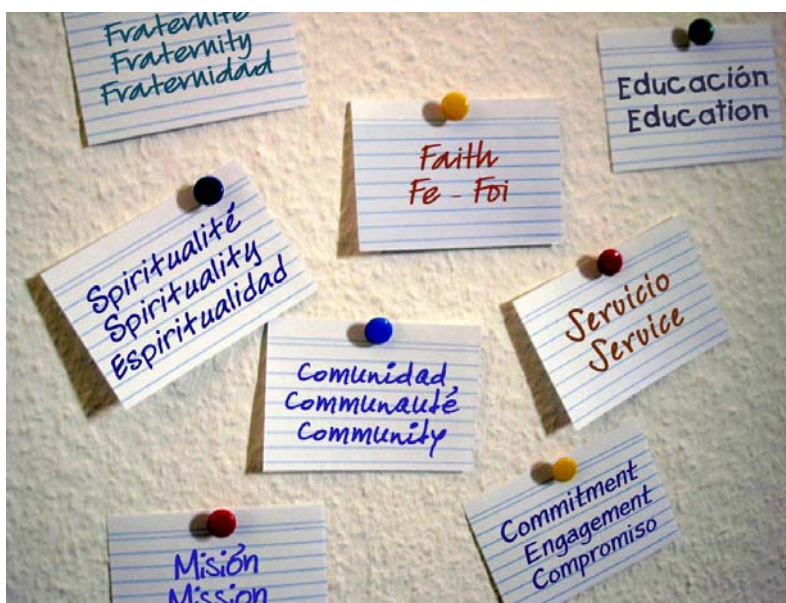 Fraternité
Fraternity
Fraternidad
Educación
Education
Faith
Fe - Foi
Spiritualité
Spirituality
Espiritualidad
Servicio
Service
Comunidad
Communauté
Community
Commitment
Engagement
Compromiso
Misión
Mission